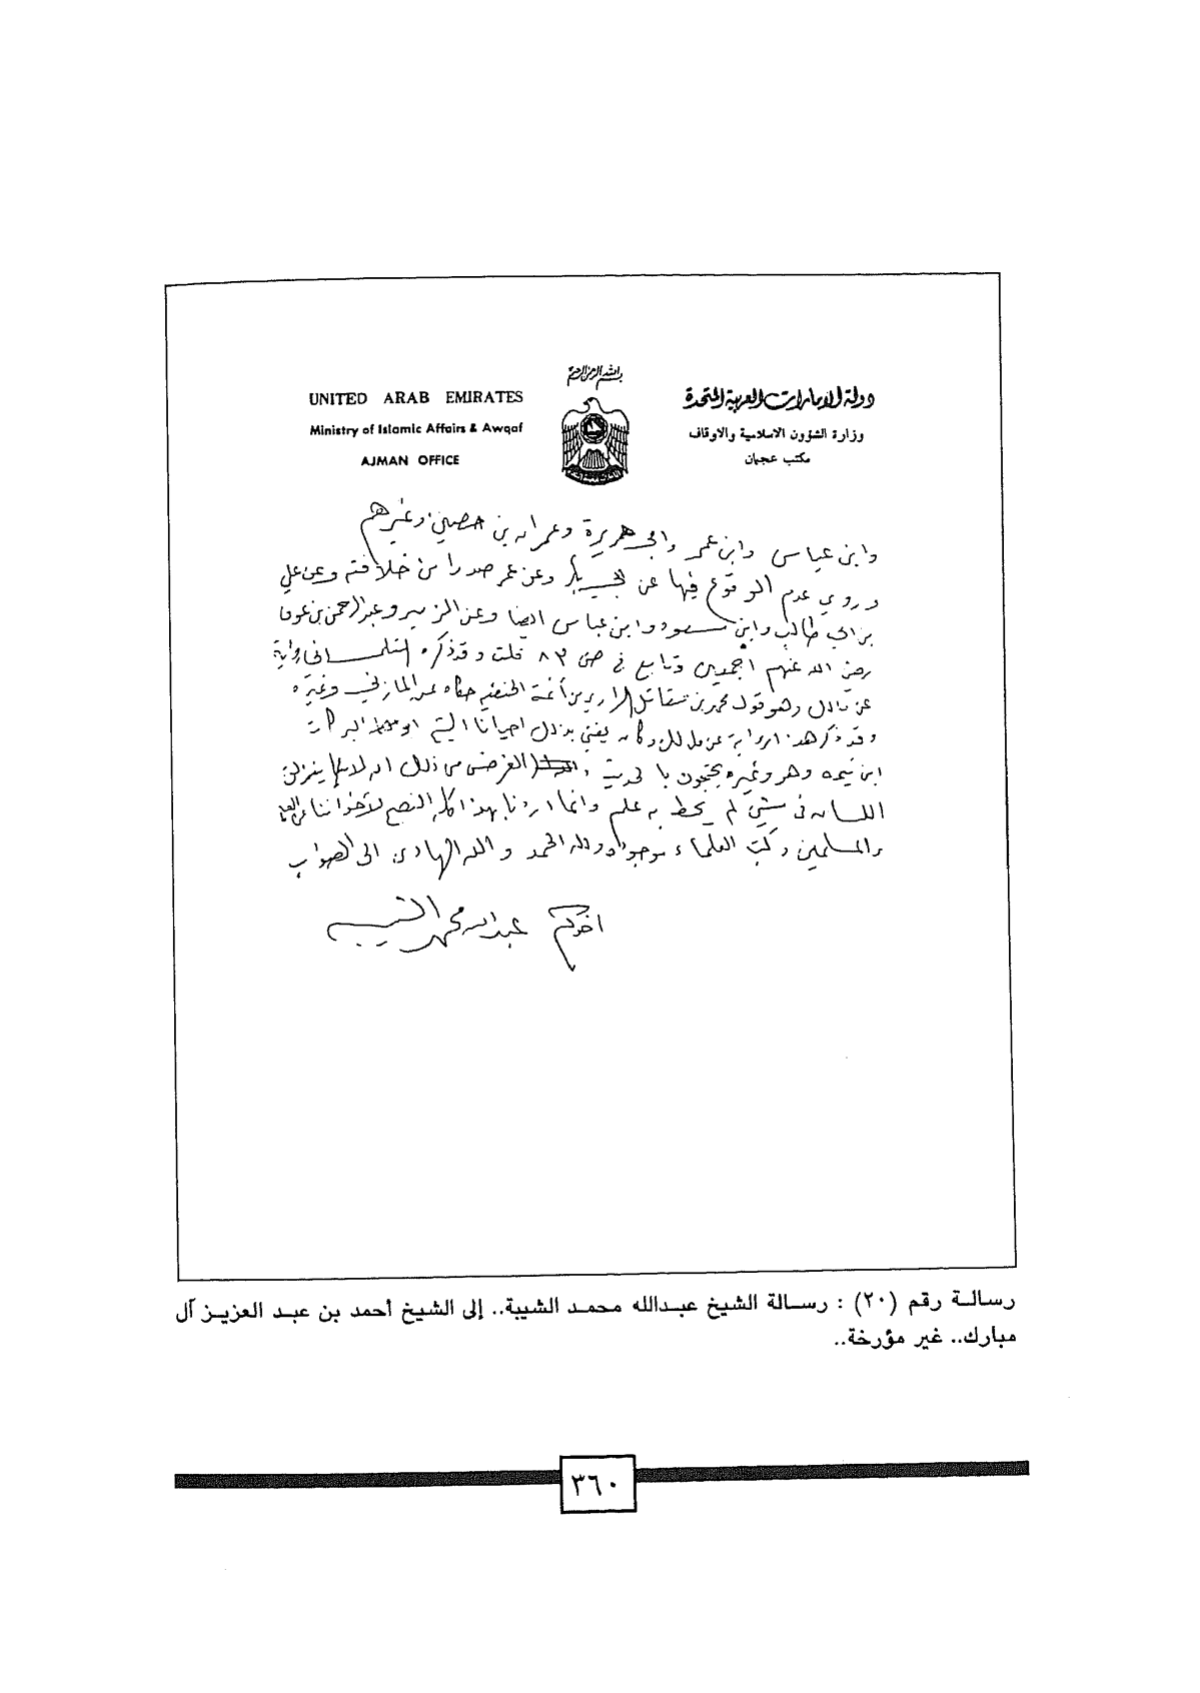 بسم الله الرحمن الرحيم
UNITED ARAB EMIRATES
Ministry of Islamic Affairs & Awqaf
AJMAN OFFICE
دولة الامارات العربية المتحدة
وزارة الشؤون الاسلامية والاوقاف
مكتب عجمان
وابن عباس وابن عمر وابي هريرة وعمران بن حصين وغيرهم
وروي عدم الوقوع فيها عن ابي بكر وعن عمر صدرا من خلافته وعن علي
بن ابي طالب وابن مسعود وابن عباس ايضا وعن الزبير وعبد الرحمن بن عوف
رضي الله عنهم اجمعين وتابع في ص ٨٣ قلت وقد ذكره التلمساني رواية
عن مالك وهو قول محمد بن مقاتل الرازي من أئمة الحنفية حكاه عنه المازني وغيره
وقد ذكر هذه الرواية عن مالك وكان يفتي بذلك احيانا الشيخ ابو البركات
ابن تيمية وهو وغيره يحتجون بالحديث الغرض من ذلك ان لا ينزلق
اللسان في شيء لم يحط به علم وانما اردنا بهذا كله النصح لأخواننا
والمسلمين وكتب العلماء موجودة ولله الحمد والله الهادي الى الصواب
اخوكم عبدالله محمد الشيبة
رسالة رقم (٢٠) : رسالة الشيخ عبدالله محمد الشيبة.. إلى الشيخ أحمد بن عبد العزيز آل
مبارك.. غير مؤرخة..
٣٦٠